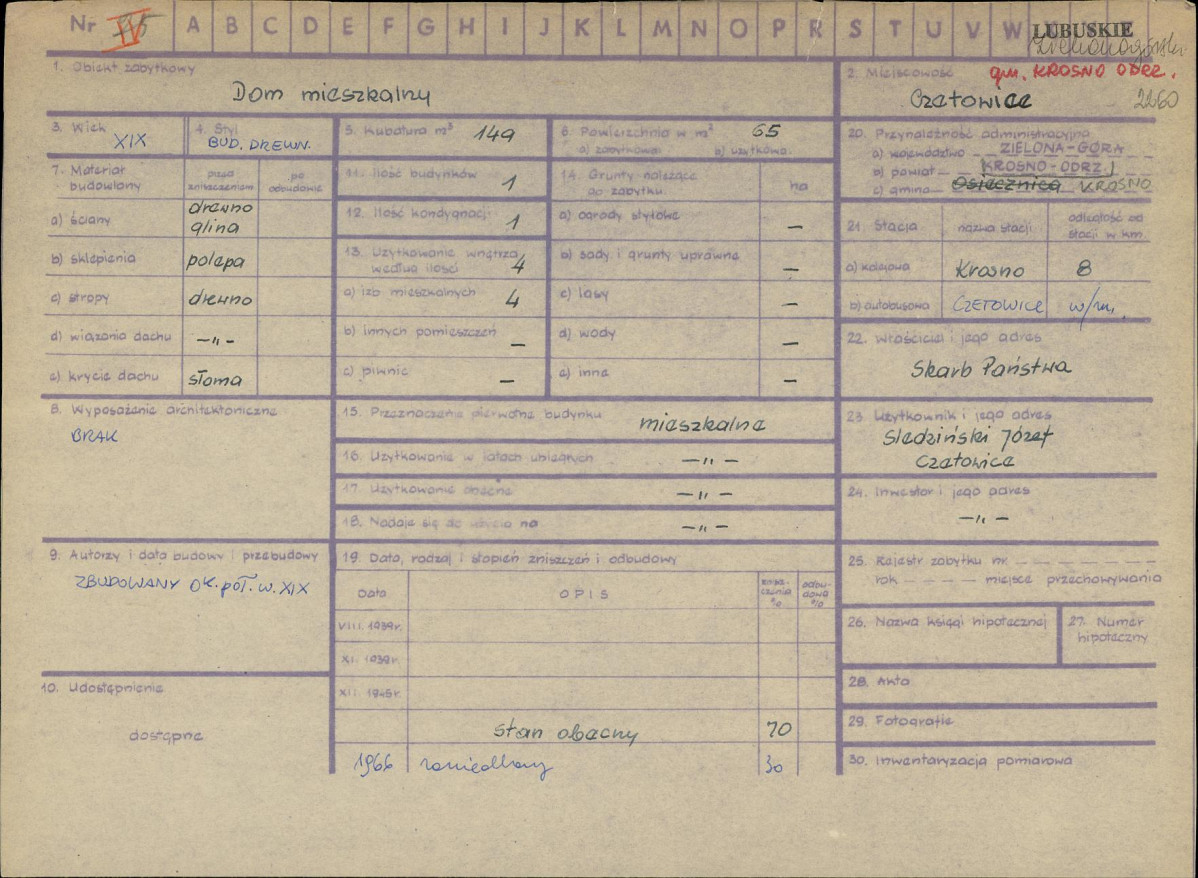 Nr IV A B C D E F G H I J K L M N O P R S T U V W
LUBUSKIE
1. Obiekt zabytkowy
Dom mieszkalny
2. Miejscowość gm. KROSNO ODRZ.
Czetowice 2260
3. Wiek
XIX
4. Styl
BUD. DREWN.
5. Kubatura m³ 149
6. Powierzchnia w m² 65
a) zabytkowa: b) użytkowa:
7. Materiał budowlany
przed zniszczeniem
po odbudowie
a) ściany drewno glina
b) sklepienia polepa
c) stropy drewno
d) wiązania dachu -„-
e) krycie dachu słoma
11. Ilość budynków 1
12. Ilość kondygnacji 1
13. Użytkowanie wnętrza według ilości 4
a) izb mieszkalnych 4
b) innych pomieszczeń –
c) piwnic –
14. Grunty należące do zabytku.
ha
a) ogrody stylowe –
b) sady i grunty uprawne –
c) lasy –
d) wody –
e) inne –
20. Przynależność administracyjna
a) województwo ZIELONA-GÓRA
b) powiat KROSNO-ODRZ.
c) gmina Osiecznica KROSNO
21. Stacja
nazwa stacji
odległość od stacji w km.
a) kolejowa Krosno 8
b) autobusowa CZETOWICE w/m.
22. Właściciel i jego adres
Skarb Państwa
8. Wyposażenie architektoniczne
BRAK
15. Przeznaczenie pierwotne budynku mieszkalne
16. Użytkowanie w latach ubiegłych -„-
17. Użytkowanie obecne -„-
18. Nadaje się do użycia na -„-
23. Użytkownik i jego adres
Sledziński Józef
Czetowice
24. Inwestor i jego adres
-„-
9. Autorzy i data budowy i przebudowy
ZBUDOWANY OK. POŁ. W. XIX
19. Data, rodzaj i stopień zniszczeń i odbudowy
Data
OPIS
zniszczenia %
odbudowa %
VIII. 1939r.
XI. 1939r.
XII. 1945r.
stan obecny 70
1966 zaniedbany 30
25. Rejestr zabytku nr.
rok – – – – miejsce przechowywania
26. Nazwa księgi hipotecznej
27. Numer hipoteczny
10. Udostępnienie
dostępne
28. Akta
29. Fotografie
30. Inwentaryzacja pomiarowa